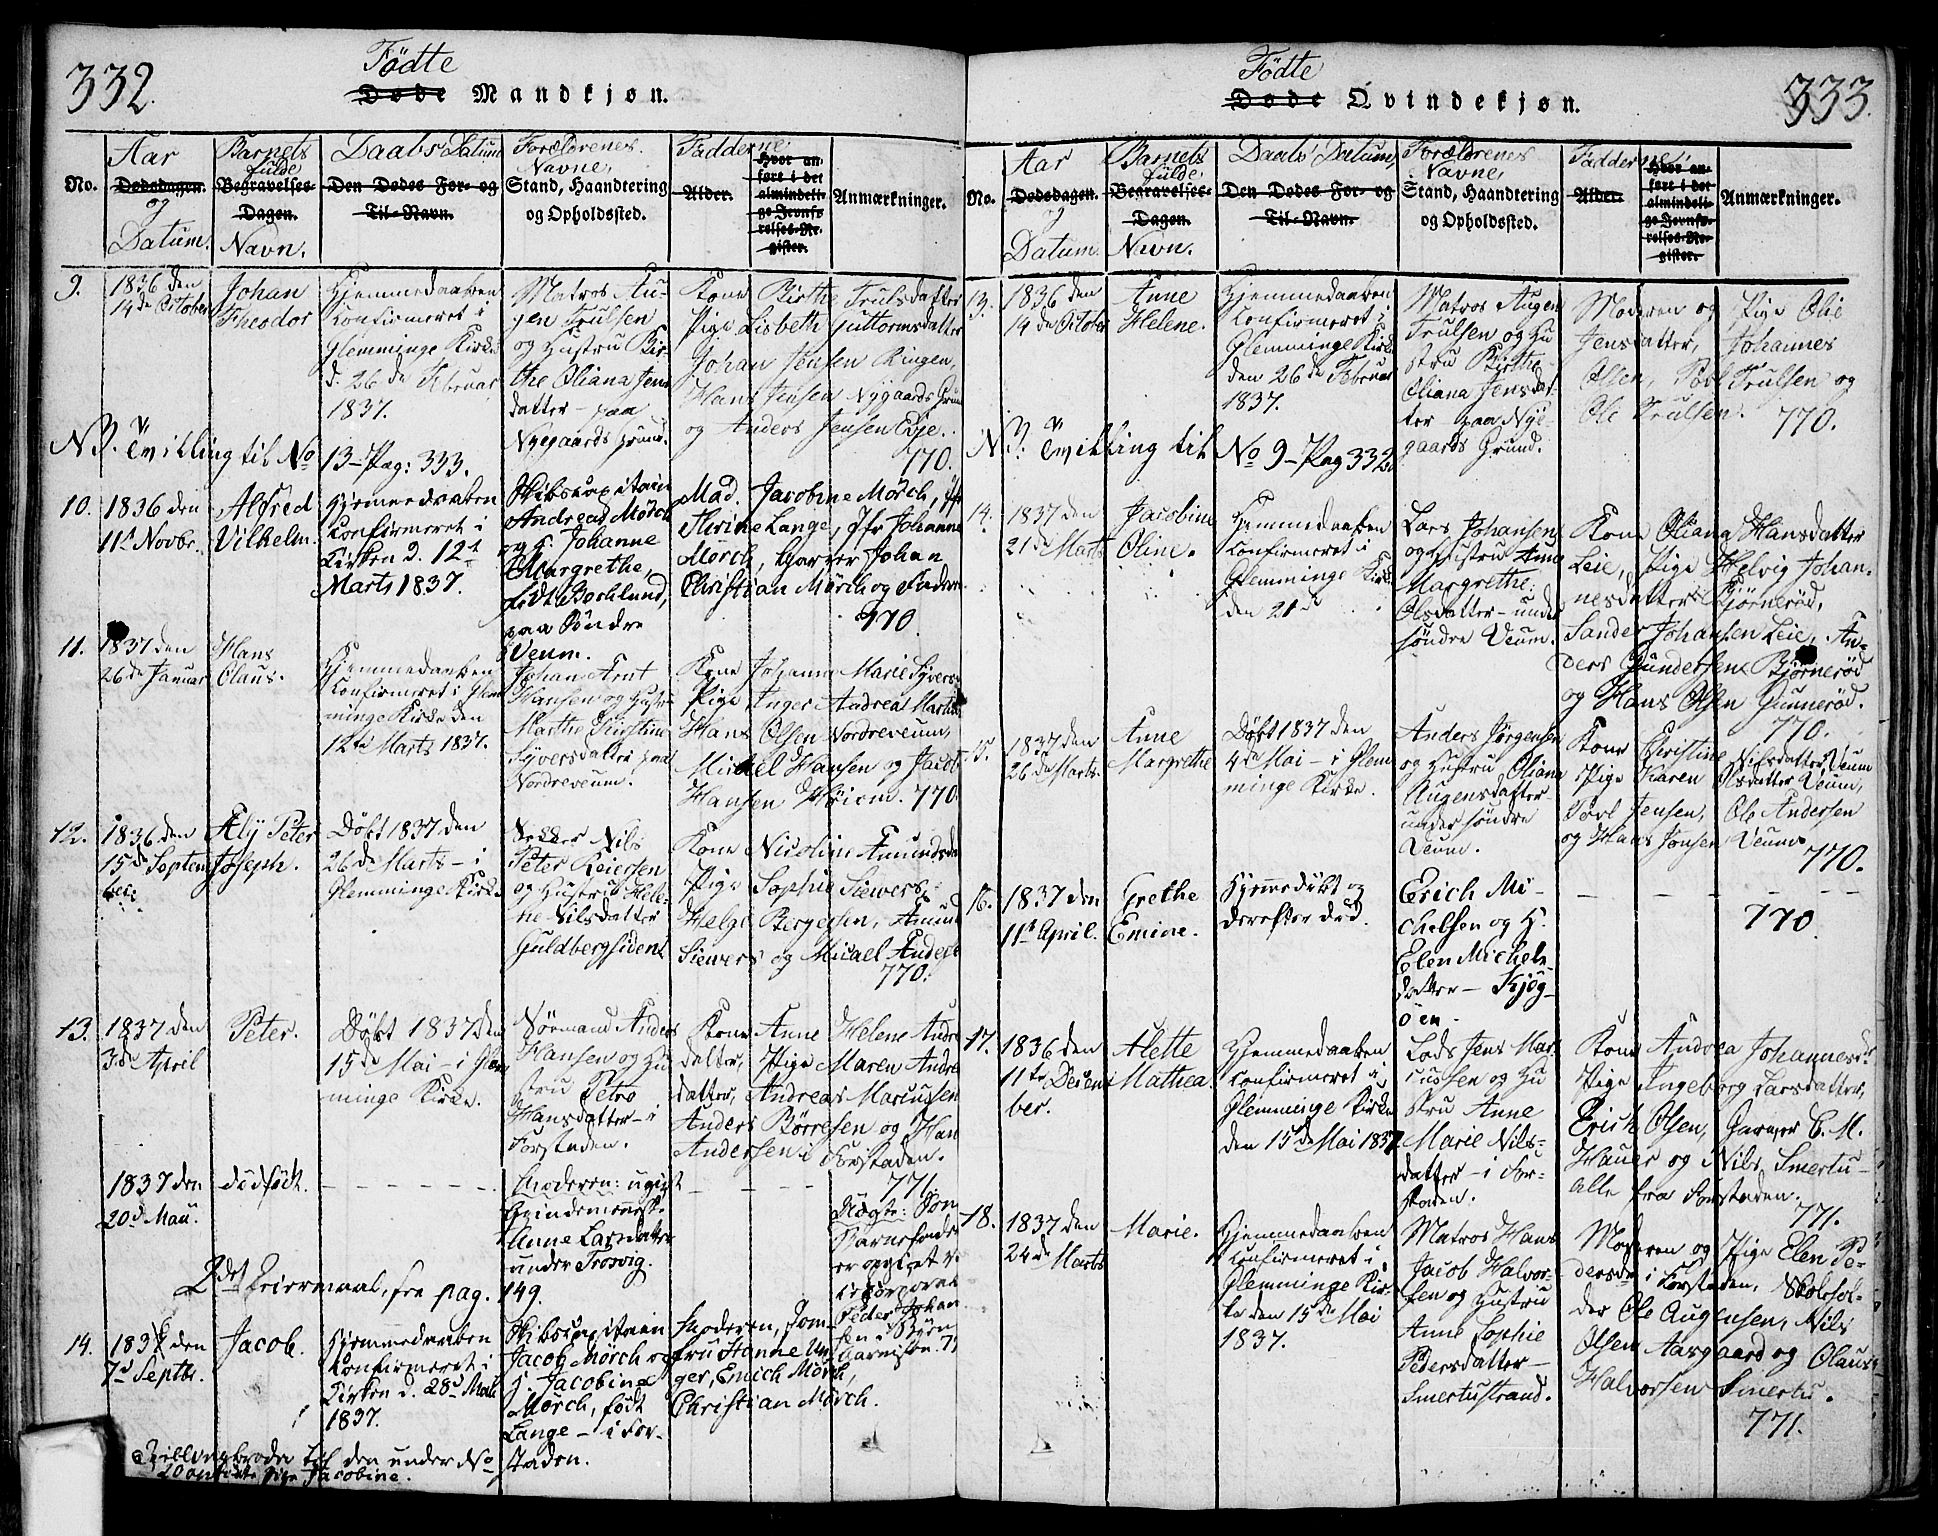 332.
Födte
Døde Mandkjøn.
No.
Aar
Dødsdagen.
og
Datum.
Barnets
fulde
Begravelses-
Dagen.
Navn.
Daabs Datum
Den Dødes For- og
Til-Navn.
Forældrenes
Navne,
Stand, Haandtering
og Opholdssted.
Fadderne
Alder.
Hvor an-
ført i det
almindeli-
ge Jevnfø-
relses-Re-
gister.
Anmærkninger.
9.
1836 den
14de October
Johan
Theodor
Hjemmedøbt
Confirmeret i
Glemminge Kirke
d. 26de Februar
1837.
Matros Au-
gen Trulsen
og Hustru Bir-
the Oliana Jens
datter - paa
Nygaards Grund.
Kone Birthe Trulsdatter
Pige Lisbeth Guttormsdatter
Johan Jensen Ringen,
Hans Jensen Nygaards Grund
og Anders Jensen Evje.
770.
NB. Tvilling til No 13 - Pag: 333.
10.
1836 den
11te Novbr.
Alfred
Vilhelm.
Hjemmedøbt
Confirmeret i
Kirken d. 12te
Marts 1837.
Skibscapitain
Andreas Mörch
og H. Johanne
Margrethe,
født Bochlund,
paa Søndre
Veum.
Mad. Jacobine Mörch, Jfr
Thrine Lange, Jfr Johanne
Mörch, Garver Johan
Christian Mörch og Faderen
770
11.
1837 den
26de Januar
Hans
Claus.
Hjemmedøbt
Confirmeret i Glem
minge Kirke den
12te Marts 1837.
Johan Arnt
Hansen og Hustru
Marthe Kirstine
Syversdatter paa
Nordreveum.
Kone Johanne Marie Syvers
Pige Inger Andrea Martin
Hans Olsen Nordreveum,
Michael Hansen og Jacob
Hansen Høiem. 770.
12.
1836 den
15de Septem
ber.
Aly Peter
Joseph.
Døbt 1837 den
26de Marts - i
Glemminge Kirke
Nils
Peter Reiersen
og Hustru Hele-
ne Nilsdatter
Guldbergsiden
Kone Nicoline Amundsd
Pige Sophie Siewers,
Helge Bergesen, Amund
Siewers og Micael Anders
770.
13.
1837 den
3de April
Peter.
Døbt 1837 den
15de Mai - i Glem
minge Kirke.
Nörmand Anders
Hansen og Hu
stru Petro
Hansdatter - i
Forstaden.
Kone Anne Helene Andre
datter, Pige Maren Andre
datter, Andreas Marcussen
Anders Börresen og Han
Andersen i Forstaden.
771.
1837 den
20de Mai.
dödfödt.
Moderen: ugift
Qvindemennesk.
Anne Larsdatter
under Trosvig.
2det Leiermaal, fra pag. 149.
14.
1836 den
7de Septbr.
Jacob.
Hjemmedøbt
Confirmeret i
Kirken d. 28de Mai
1837.
Skibscapitain
Jacob Mörch og
H. Jacobine
Mörch, født
Lange - i For-
staden.
Moderen, Jom-
fru Hanne Un-
ger, Erich Mörch,
Christian Mörch.
Tvillingbroder til den under No
20 anførte Pige Jacobine.
333.
Födte
Døde Qvindekjøn.
No.
Aar
Dødsdagen.
og
Datum.
Barnets
fulde
Begravelses-
Dagen.
Navn.
Daabs Datum
Den Dødes For- og
Til-Navn.
Forældrenes
Navne,
Stand, Haandtering
og Opholdssted.
Fadderne,
Alder.
Hvor an-
ført i det
almindeli-
ge Jevnfø-
relses-Re-
gister.
Anmærkninger.
13.
1836 den
14de October
Anne
Helene.
Hjemmedøbt
Confirmeret i
Glemminge Kirke
den 26de Februar
1837.
Matros Augen
Trulsen og Hu
stru Birthe
Oliana Jensdat-
ter paa Nye
gaards Grund.
Moderen og Pige Olie
Jensdatter, Johannes
Olsen, Povl Trulsen og
Ole Trulsen.
770.
NB. Tvilling til No 9 - Pag 332.
14.
1837 den
21de Marts
Jacobine
Oline.
Hjemmedøbt
Confirmeret i
Glemminge Kirke
den 21de
Lars Johansen
og Hustru Anne
Margrethe
Olsdatter - under
søndre Veum.
Kone Oliana Hansdatter
Leie, Pige Helvig Johan-
nesdatter Bjørnerød,
Sander Johansen Leie, An-
ders Gundersen Bjørnerød
og Hans Olsen Gunnerød.
770.
15.
1837 den
26de Marts.
Anne
Margrethe
Døbt 1837 den
4de Mai - i Glem
minge Kirke.
Anders Jørgensen
og Hustru Oliana
Augensdatter
under søndre
Veum.
Kone Christine Nilsdatter Veum
Pige Karen Olsdatter Veum,
Povl Jensen, Ole Andersen
og Hans Jonsen Veum
770.
16.
1837 den
11te April.
Grethe
Emine.
Hjemmedøbt og
derefter død.
Erich Mi-
chelsen og H.
Elen Michels-
datter - Kjøg-
øen.
770
17.
1836 den
11te Decem
ber.
Alette
Mathea.
Hjemmedøbt
Confirmeret i
Glemminge Kirke
den 15de Mai 1837
Lods Jens Mar-
cussen og Hu
stru Anne
Marie Nils-
datter - i For-
staden.
Kone Andrea Johannesdr
Pige Ingeborg Larsdatter,
Erich Olsen, Garver C. M.
Hauer og Nils Smertu-
alle fra Forstaden.
771.
18.
1837 den
24de Marts
Marie.
Hjemmedøbt
Confirmeret i
Glemminge Kir-
ke den 15de Mai
1837.
Matros Hans
Jacob Halvor-
sen og Hustru
Anne Sophie
Pedersdatter -
Smertustrand.
Moderen og Pige Elen Pe-
dersdr i Forstaden, Skolehol-
der Ole Augensen, Nils
Olsen Aasgaard og Olaus
Halvorsen Smertu.
771.